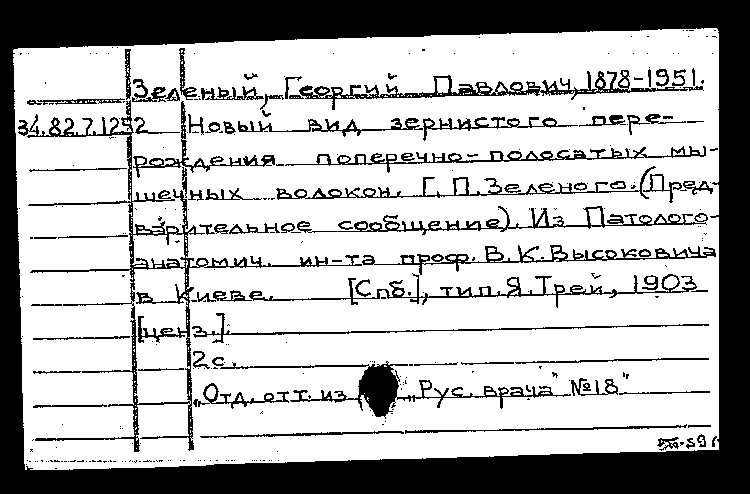 Зеленый, Георгий Павлович, 1878-1951.
34.82.7.1252 Новый вид зернистого пере-
рождения поперечно-полосатых мы-
шечных волокон. Г.П.Зеленого.(Пред-
варительное сообщение). Из Патолого-
анатомич. ин-та проф. В.К.Высоковича
в Киеве. [Спб.], тип.Я.Трей, 1903
[ценз.].
2с.
"Отд. отт. из "Рус. врача" №18"